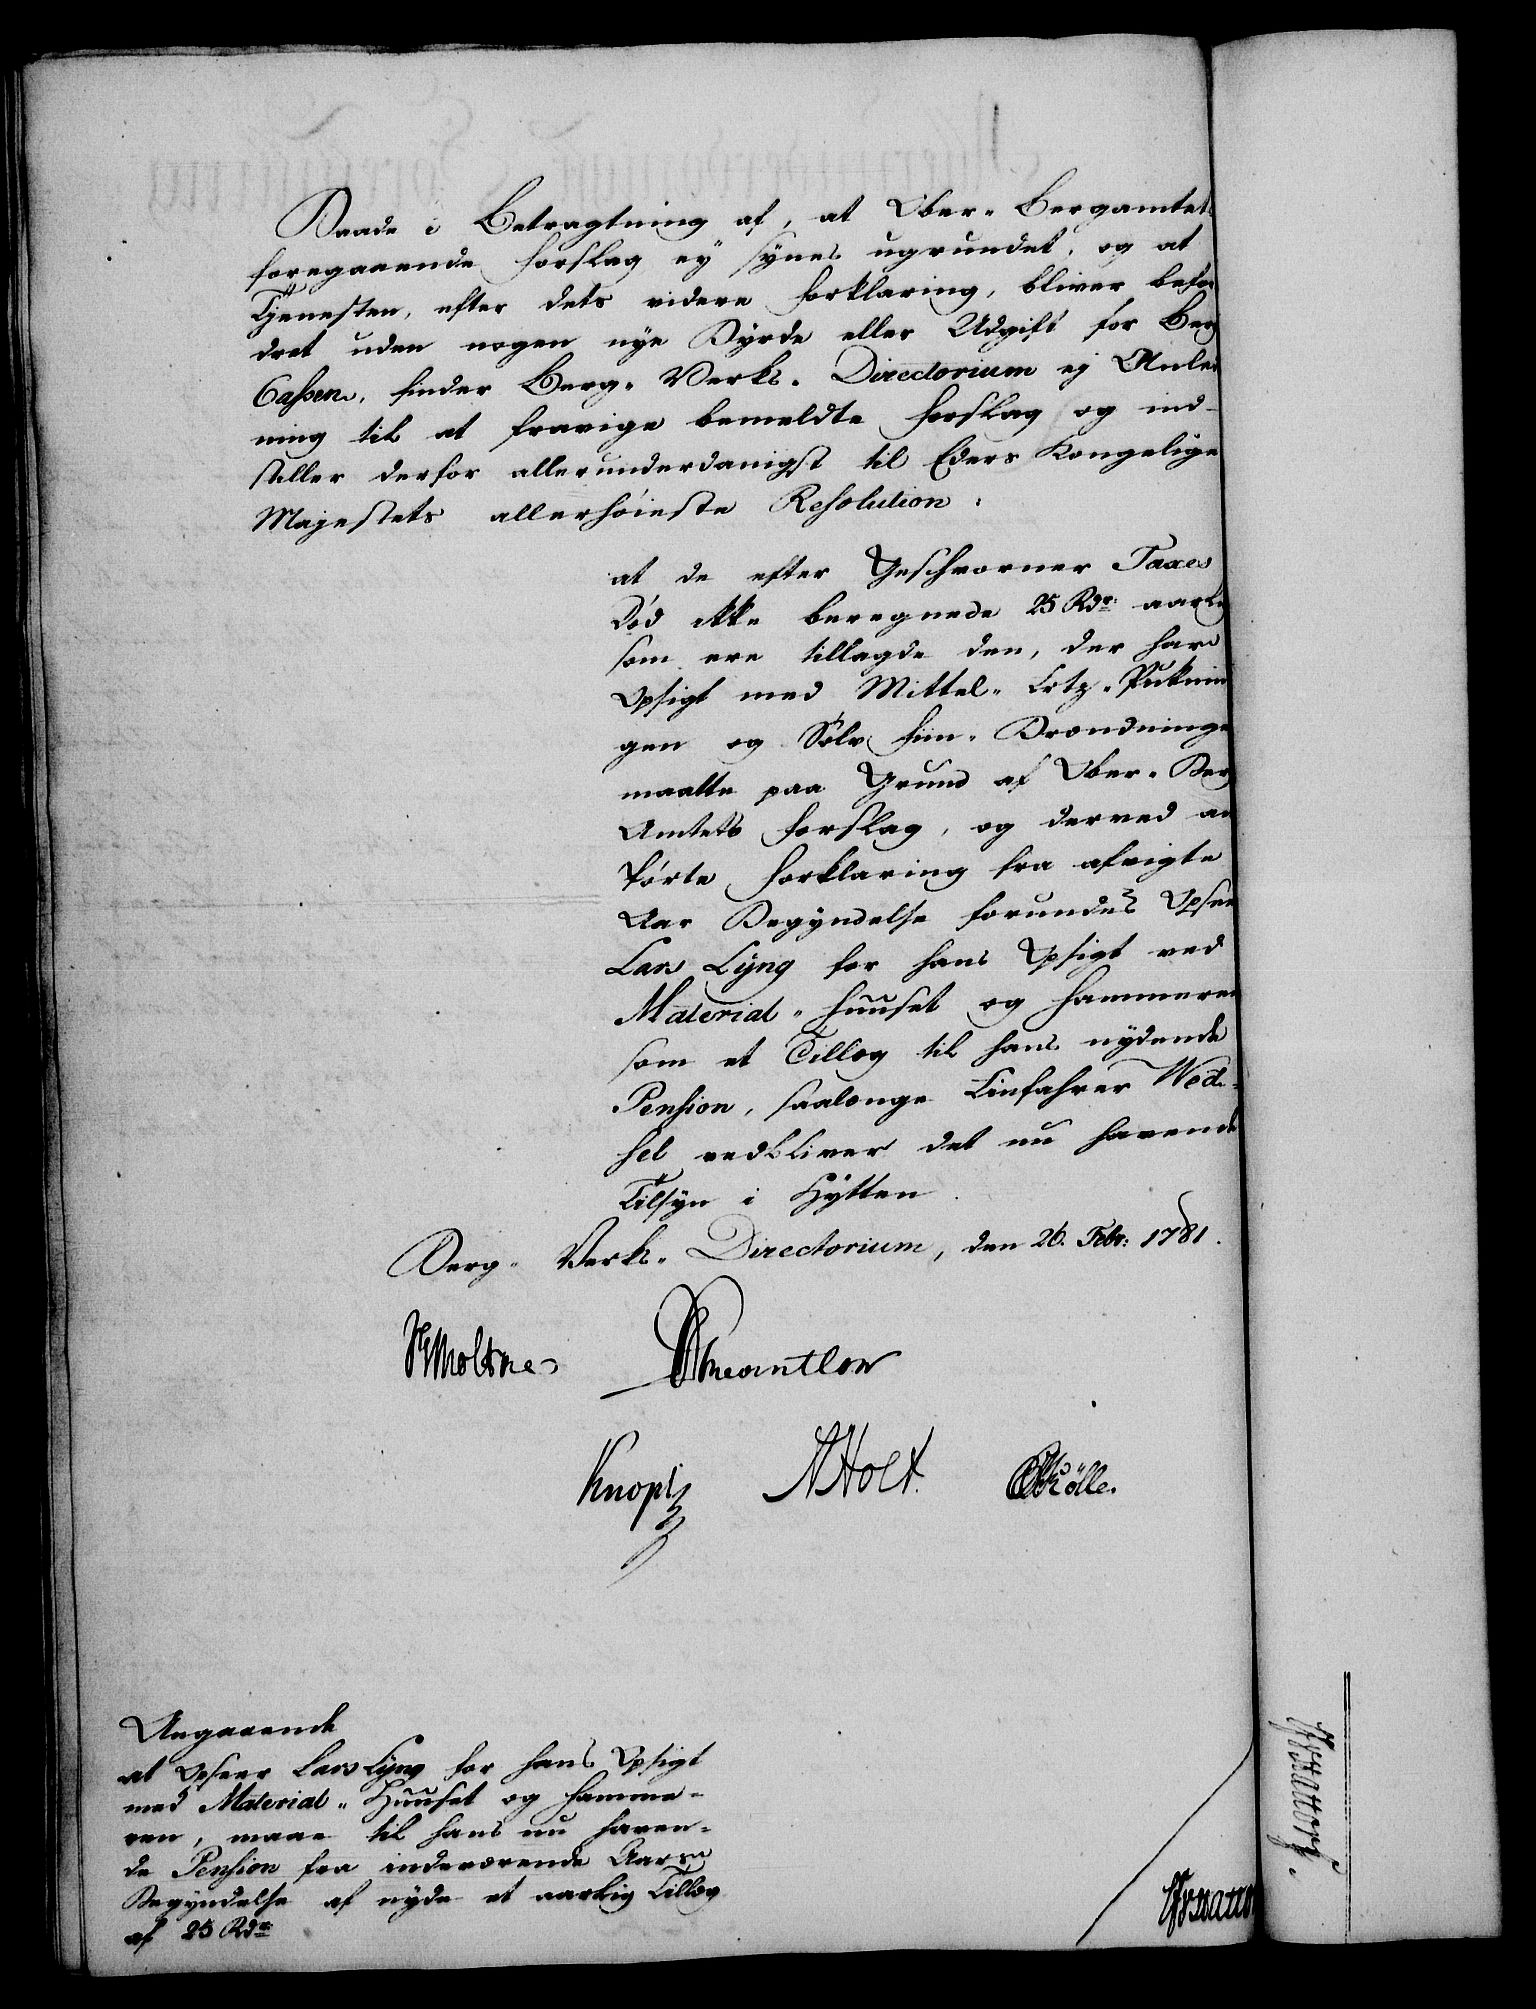 Baade i Betragtning af, at Ober-Bergamtets
foregaaende Forslag ey synes ugrundet, og at
Tjenesten, efter dets videre Forklaring, bliver befor
dret uden nogen nye Byrde eller Udgift for Berg
Cassen, finder Berg-Verks-Directorium ej Anled
ning til at fravige bemeldte Forslag og ind-
stiller derfor allerunderdanigst til Eders Kongelige
Majestets allerhöieste Resolution:
at de efter Geschworner Taxes
Död ikke beregnede 25 Rdr. aarlig
som ere tillagde den, der har
Opsigt med Mittel-Ertz-Puknin
gen og Sölv fiin-Brændninge
maatte paa Grund af Ober-Berg
Amtets Forslag, og derved an
förte Forklaring fra afvigte
Aars Begyndelse forundes Opseer
Lars Lyng for hans Opsigt ved
Material-Huuset og Hammeren
som et Tillæg til hans nydende
Pension, saalænge Einfahrer Wed-
sel vedbliver det nu havende
Tilsyn i Hytten.
Berg-Verks-Directorium, den 26. Febr: 1781.
Moltke
Knoph NHolt
Angaaende
at Opseer Lars Lyng for hans Opsigt
med Material-Huuset og Hamme-
ren, maae til hans nu haven-
de Pension fra indeværende Aars
Begyndelse af nyde et aarlig Tillæg
af 25 Rdr.